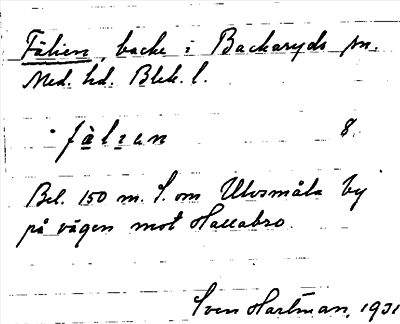 Fälien, backe i Backaryds sn.
Med. hd. Blek. l.
fälıen 8.
Bel. 150 m. S. om Ulvsmåla by
på vägen mot Hallabro.
Sven Hartman, 1931